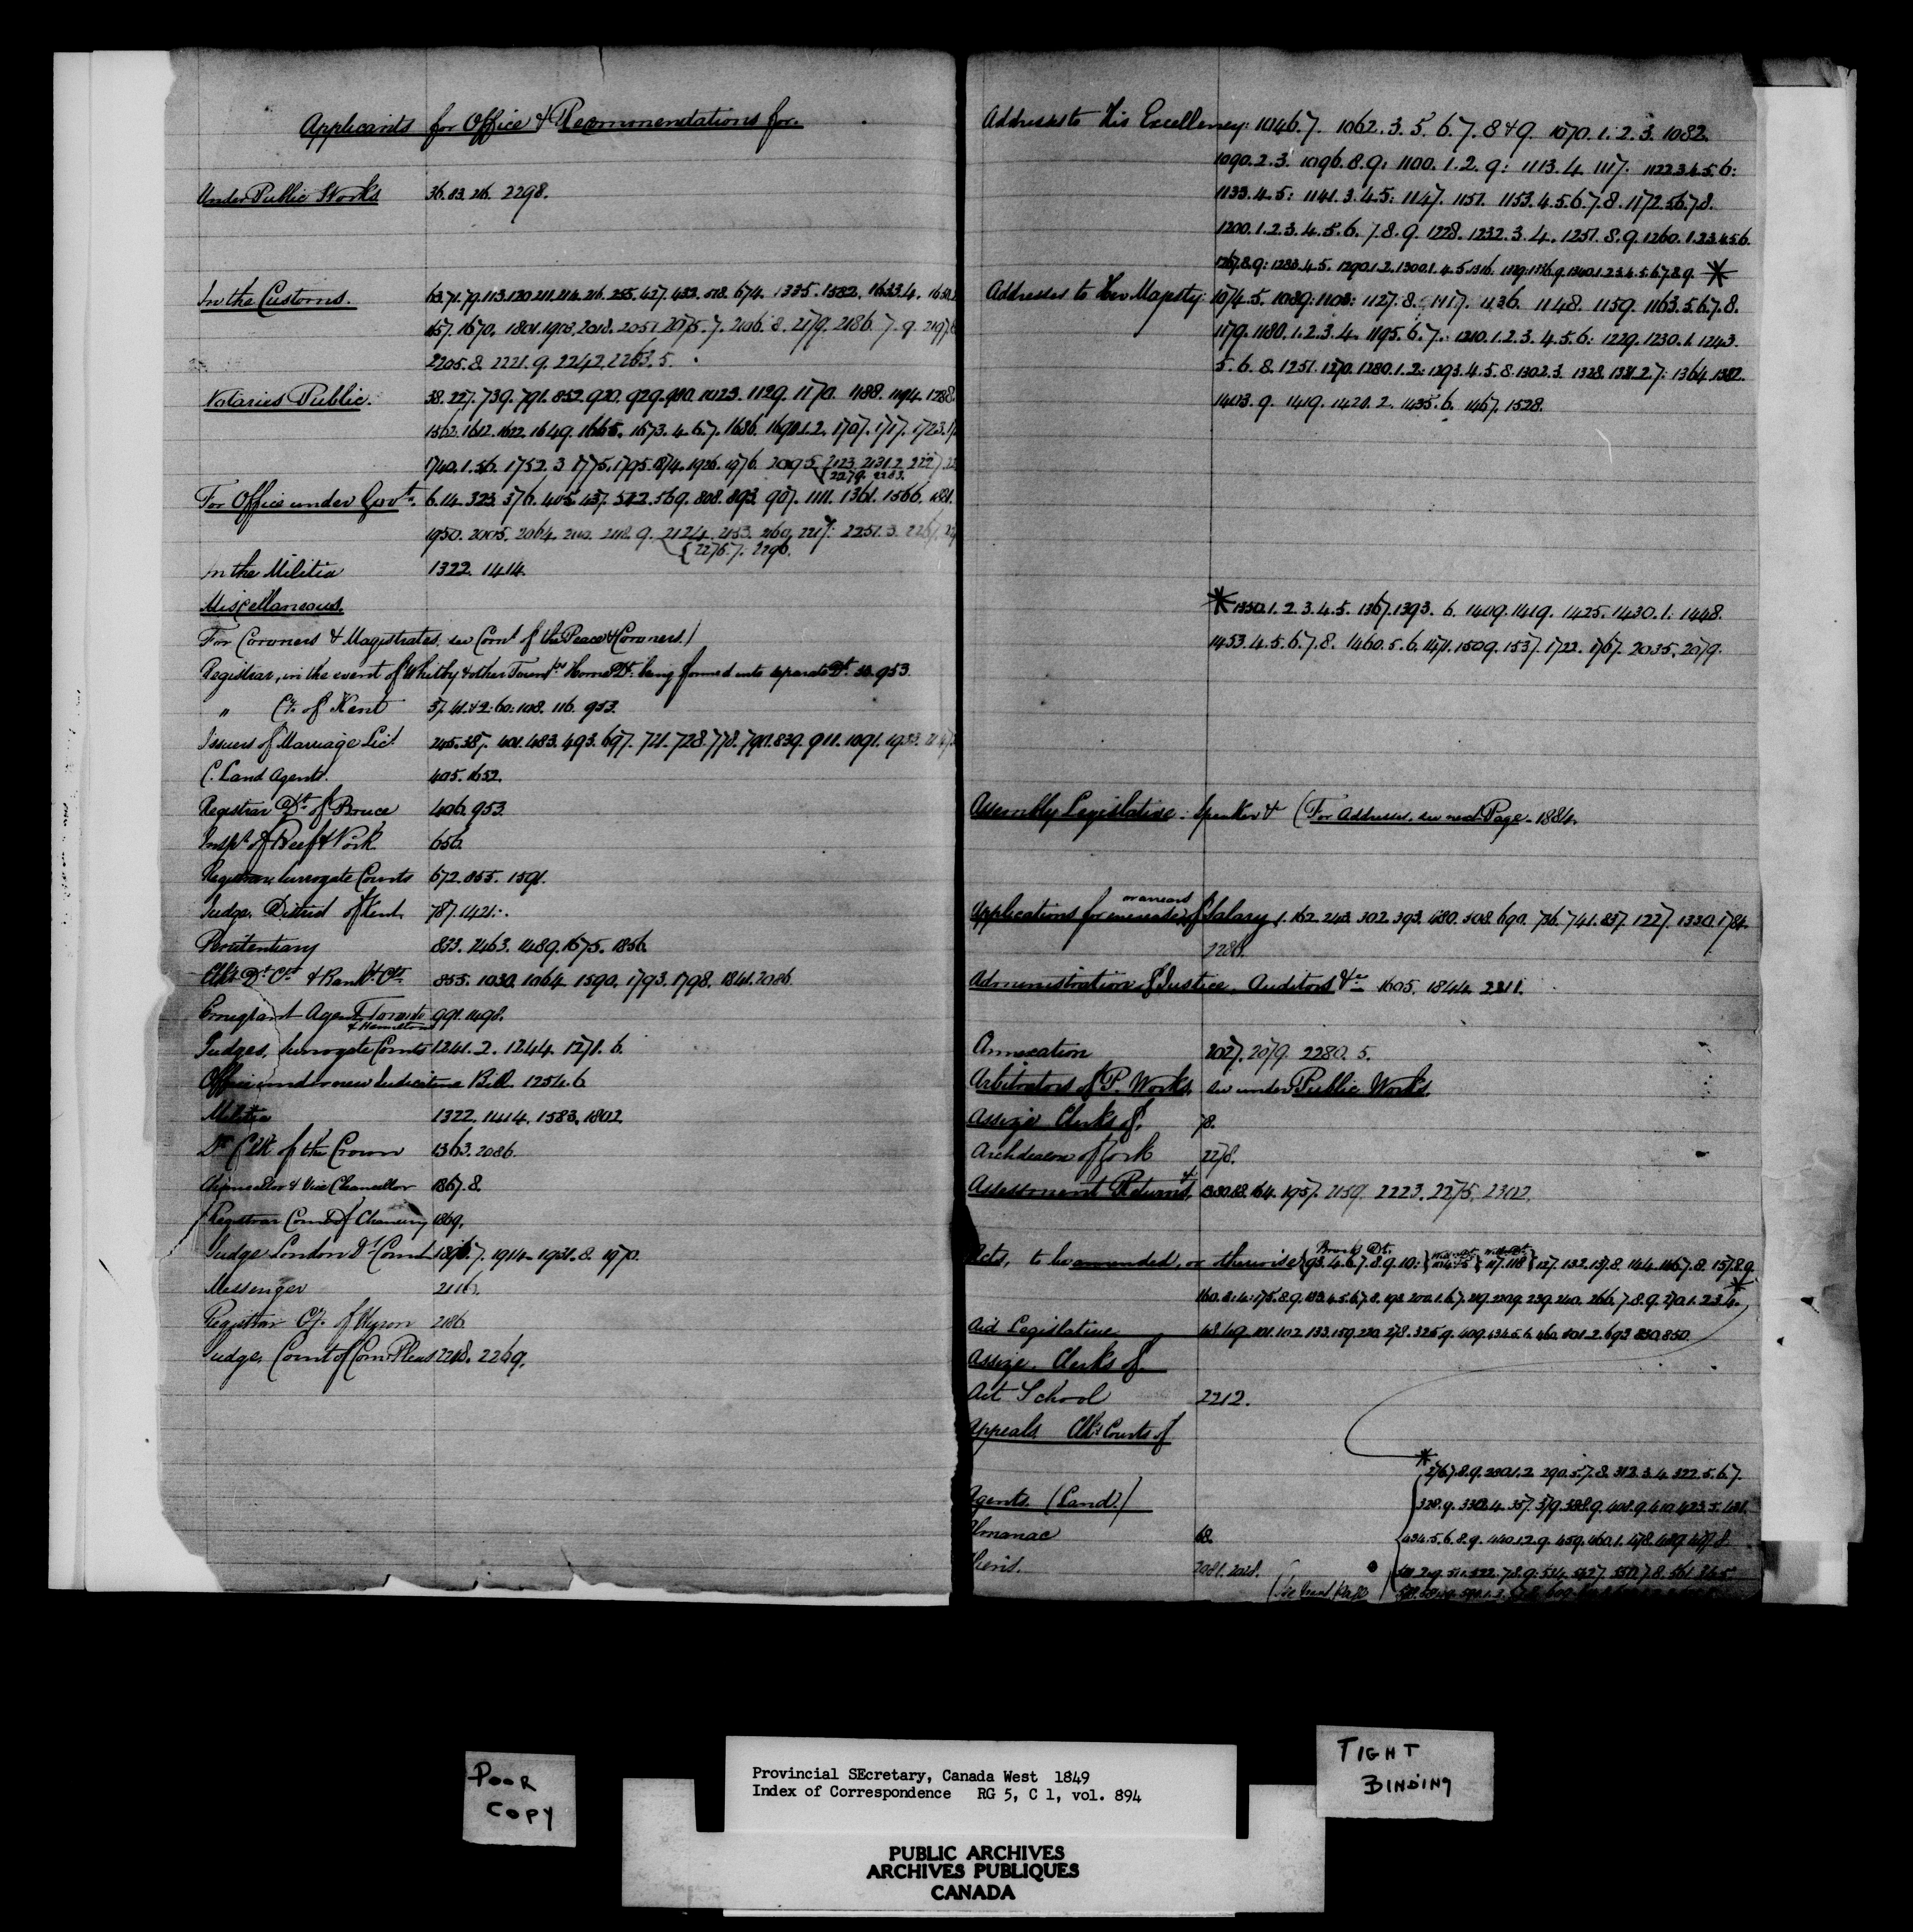 Applicants for Office & Recommendations for.
Under Public Works 36. 83. 216. 2298.
In the Customs. 63. 71. 79. 113. 120. 211. 214. 216. 255. 427. 433. 518. 674. 1335. 1582. 1633.4.
1670. 1801. 1918. 2018. 2051. 2075.7. 2106.8. 2179. 2186.7.9.
2205.8. 2221.9. 2242. 2263.5.
Notaries Public. 38. 227. 739. 791. 852. 920. 929. 1023. 1129. 1170. 1188. 1194. 1288.
1562. 1612. 1622. 1649. 1665. 1673.4.6.7. 1686. 1690.1.2. 1707. 1717. 1723.
1740.1.56. 1752.3 1775. 1795. 1874. 1926. 1976. 2095. 2123. 2131.2. 2227
2279. 2283.
For Office under Govt. 6. 14. 323. 376. 405. 437. 522. 569. 808. 893. 907. 1111. 1361. 1566.
1950. 2005. 2064. 2118.9. 2124. 2153. 2251.3.
2276.7. 2296.
In the Militia 1322. 1414.
Miscellaneous.
For Coroners & Magistrates, see Comn. of the Peace & Coroners.)
Registrar, in the event of Whitby & other Townps. Home Dt. being formed into separate Dt. 953.
" Cy. of Kent 37. 41. & 2: 60: 108. 116. 953.
Issuers of Marriage Lic. 245. 387. 401. 483. 493. 697. 721. 728. 778. 790. 839. 911. 1091.
C. Land Agents. 405. 1652.
Registrar Dt. of Bruce 406. 953.
Inspr. of Beef & Pork 656.
Registrar, Surrogate Courts 672. 855. 1591.
Judge, District of Kent 787. 1421.
Penitentiary 833. 1463. 1489. 1675. 1856.
Clks. Dt. Ct. & Bankt. Cts. 855. 1030. 1064. 1590. 1793. 1798. 1841. 2086
Emigrant Agent, Toronto 991. 1498.
& Hamilton
Judges, Surrogate Courts 1241.2. 1244. 1271.6.
Office under new Judicature Bill. 1254.6
Militia 1322. 1414. 1583. 1802.
Dt. Clk of the Crown 1363. 2086.
Chancellor & Vice Chancellor 1867.8.
Registrar Court of Chancery 1869.
Judge London Dt. Court 1896.7. 1914. 1931.8. 1970.
Messenger 2116.
Registrar Cy. of Huron 2186
Judge, Court of Com. Pleas 2218. 2269.
Addresses to His Excellency: 1046.7. 1062.3.5.6.7.8 & 9. 1070.1.2.3. 1082.
1090.2.3. 1096.8.9: 1100.1.2.9: 1113.4. 1117. 1122.3.4.5.6:
1133.4.5: 1141.3.4.5: 1147. 1151. 1153.4.5.6.7.8. 1172.5.6.7.8.
1200.1.2.3.4.5.6.7.8.9. 1228. 1232.3.4. 1251.8.9. 1260.1.2.3.4.5.6.
1267.8.9: 1283.4.5. 1290.1.2. 1300.1.4.5. 1316. 1340.1.2.3.4.5.6.7.8.9. *
Addresses to Her Majesty: 1074.5. 1089: 1108: 1127.8. 1117. 1136. 1148. 1159. 1163.5.6.7.8.
1179. 1180.1.2.3.4. 1195.6.7. 1210.1.2.3.4.5.6: 1229. 1230.1. 1243.
5.6.8. 1251. 1270. 1280.1.2: 1293.4.5.8. 1302.3. 1328. 1364. 1382.
1403.9. 1419. 1421.2. 1435.6. 1467. 1528.
*1350.1.2.3.4.5. 1367. 1393.6. 1409. 1419. 1425. 1430.1: 1448.
1453.4.5.6.7.8. 1460.5.6. 1471. 1509. 1537. 1722. 1767. 2035. 2079.
Assembly Legislative. Speaker & (For Addresses, see next Page - 1884.
or arrears
Applications for increase of Salary 1. 162. 243. 302. 393. 480. 508. 690. 736. 741. 837. 1227. 1330. 1784.
2281.
Administration of Justice, Auditors &c 1605. 1844. 2211.
Annexation 2027. 2079. 2280.5.
Arbitrators of P. Works, see under Public Works.
Assize Clerks of. 78.
Archdeacon of York 2278.
Assessment Returns, & 164. 1957. 2159. 2223. 2275. 2302.
Brock Dt.
Acts, to be amended, or otherwise 93.4.6.7.8.9.10: 117.118 127. 132. 137.8. 144. 146.7.8. 157.8.9.
Aid Legislative 48. 49. 101. 102. 133. 159. 220. 278. 325.9. 409. 434.5.6. 460. 501.2. 693. 830. 850.
Assize, Clerks of
Art School 2212.
Appeals Clks Courts of
*
276.7.8.9. 280.1.2. 290.5.7.8. 312.3.4. 322.5.6.7.
Agents (Land)
434.5.6.8.9. 440.1.2.9. 459. 460.1.
Almanac 68.
POOR
COPY
Provincial SEcretary, Canada West 1849
Index of Correspondence RG 5, C 1, vol. 894
TIGHT
BINDING
PUBLIC ARCHIVES
ARCHIVES PUBLIQUES
CANADA